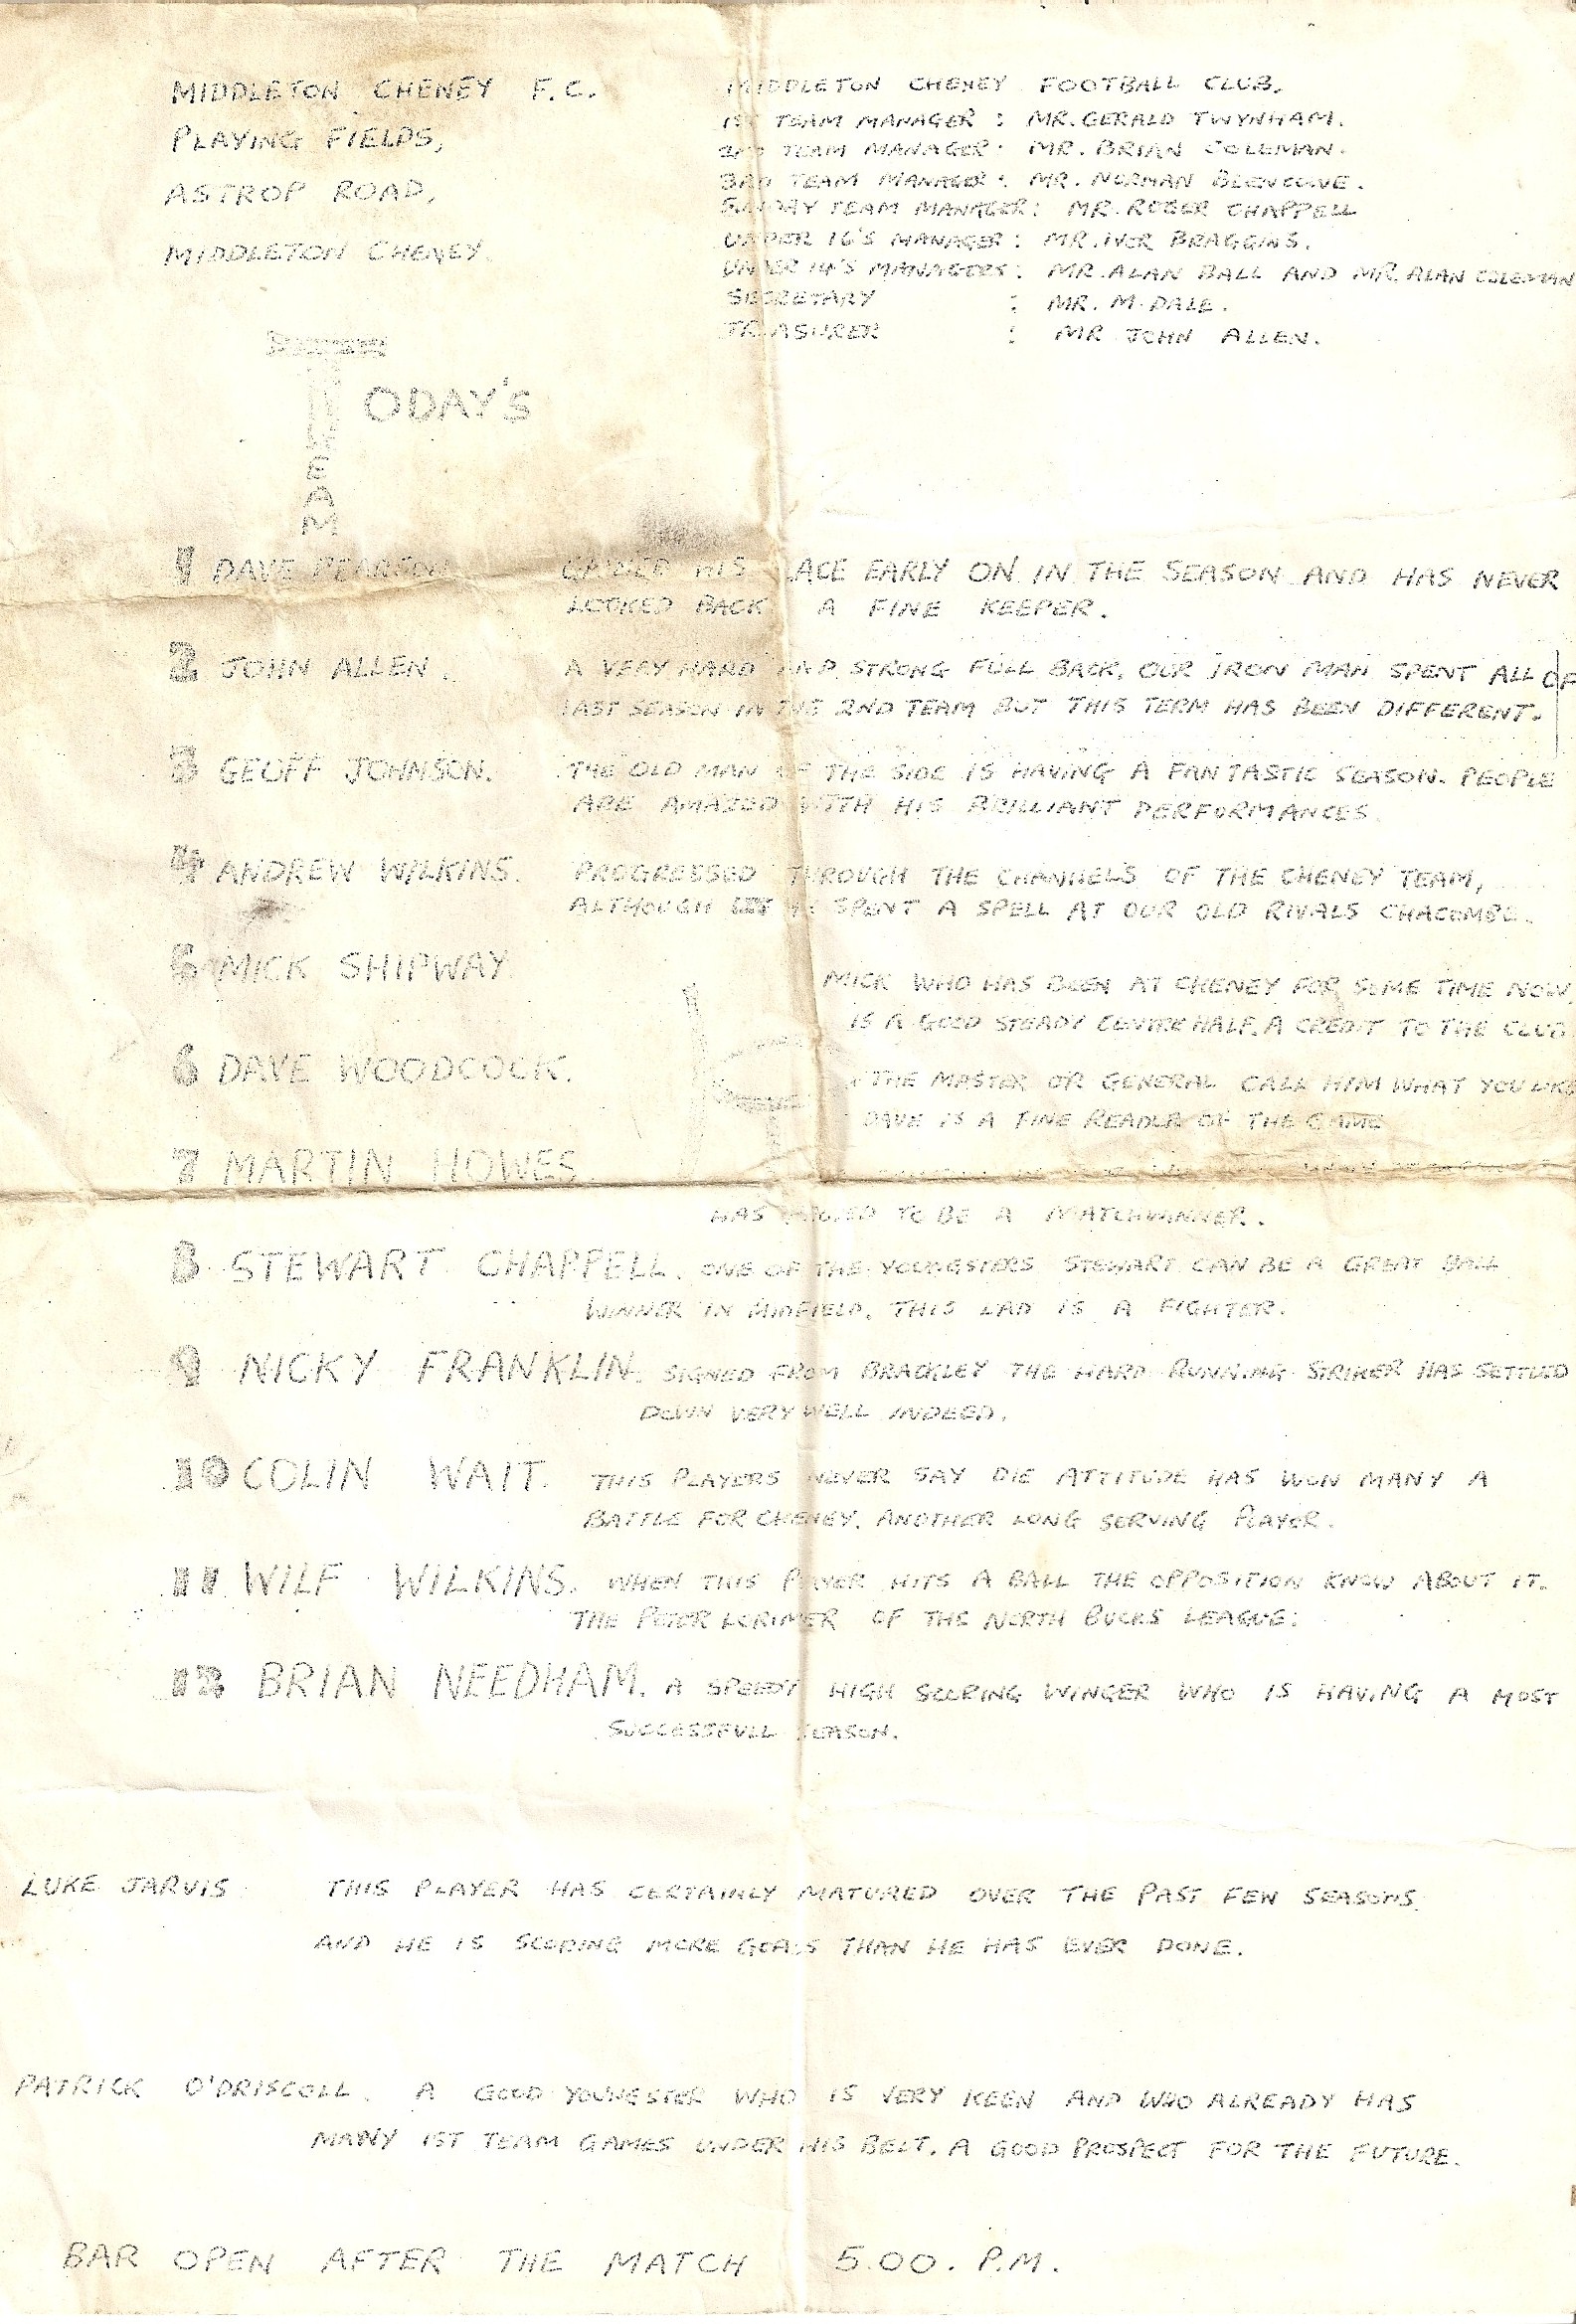 MIDDLETON CHENEY F.C.
PLAYING FIELDS,
ASTROP ROAD,
MIDDLETON CHENEY.
MIDDLETON CHENEY FOOTBALL CLUB.
1ST TEAM MANAGER : MR. GERALD TWYNHAM.
2ND TEAM MANAGER : MR. BRIAN COLEMAN.
3RD TEAM MANAGER : MR. NORMAN BLENCOWE.
SUNDAY TEAM MANAGER : MR. ROGER CHAPPELL
UNDER 16'S MANAGER : MR. IVOR BRAGGINS.
UNDER 14'S MANAGERS : MR. ALAN BALL AND MR. ALAN COLEMAN
SECRETARY : MR. M. DALE.
TREASURER : MR JOHN ALLEN.
TODAY'S
TEAM
1 DAVE PEARSON GAINED HIS PLACE EARLY ON IN THE SEASON AND HAS NEVER
LOOKED BACK A FINE KEEPER.
2 JOHN ALLEN. A VERY HARD AND STRONG FULL BACK, OUR IRON MAN SPENT ALL OF
LAST SEASON IN THE 2ND TEAM BUT THIS TERM HAS BEEN DIFFERENT.
3 GEOFF JOHNSON. THE OLD MAN OF THE SIDE IS HAVING A FANTASTIC SEASON. PEOPLE
ARE AMAZED WITH HIS BRILLIANT PERFORMANCES.
4 ANDREW WILKINS. PROGRESSED THROUGH THE CHANNELS OF THE CHENEY TEAM,
ALTHOUGH SPENT A SPELL AT OUR OLD RIVALS CHACOMBE.
5 MICK SHIPWAY. MICK WHO HAS BEEN AT CHENEY FOR SOME TIME NOW
IS A GOOD STEADY CENTRE HALF. A CREDIT TO THE CLUB
6 DAVE WOODCOCK. THE MASTER OR GENERAL CALL HIM WHAT YOU LIKE
DAVE IS A FINE READER OF THE GAME
7 MARTIN HOWES.
HAS PROVED TO BE A MATCHWINNER.
8 STEWART CHAPPELL. ONE OF THE YOUNGSTERS STEWART CAN BE A GREAT BALL
WINNER IN MIDFIELD. THIS LAD IS A FIGHTER.
9 NICKY FRANKLIN. SIGNED FROM BRACKLEY THE HARD RUNNING STRIKER HAS SETTLED
DOWN VERY WELL INDEED.
10 COLIN WAIT. THIS PLAYERS NEVER SAY DIE ATTITUDE HAS WON MANY A
BATTLE FOR CHENEY. ANOTHER LONG SERVING PLAYER.
11 WILF WILKINS. WHEN THIS PLAYER HITS A BALL THE OPPOSITION KNOW ABOUT IT.
THE PETER LORIMER OF THE NORTH BUCKS LEAGUE.
12 BRIAN NEEDHAM. A SPEEDY HIGH SCORING WINGER WHO IS HAVING A MOST
SUCCESSFULL SEASON.
LUKE JARVIS THIS PLAYER HAS CERTAINLY MATURED OVER THE PAST FEW SEASONS
AND HE IS SCORING MORE GOALS THAN HE HAS EVER DONE.
PATRICK O'DRISCOLL. A GOOD YOUNGSTER WHO IS VERY KEEN AND WHO ALREADY HAS
MANY 1ST TEAM GAMES UNDER HIS BELT. A GOOD PROSPECT FOR THE FUTURE.
BAR OPEN AFTER THE MATCH 5.00. P.M.